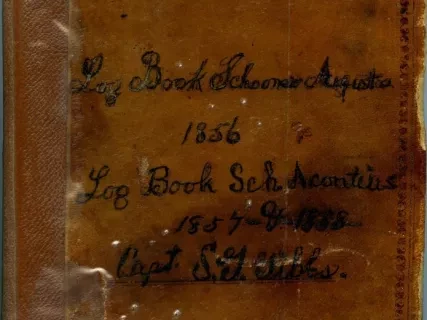 Log Book Schooner Augusta
1856
Log Book Sch Acontius
1857-&-1858
Capt. S.G.